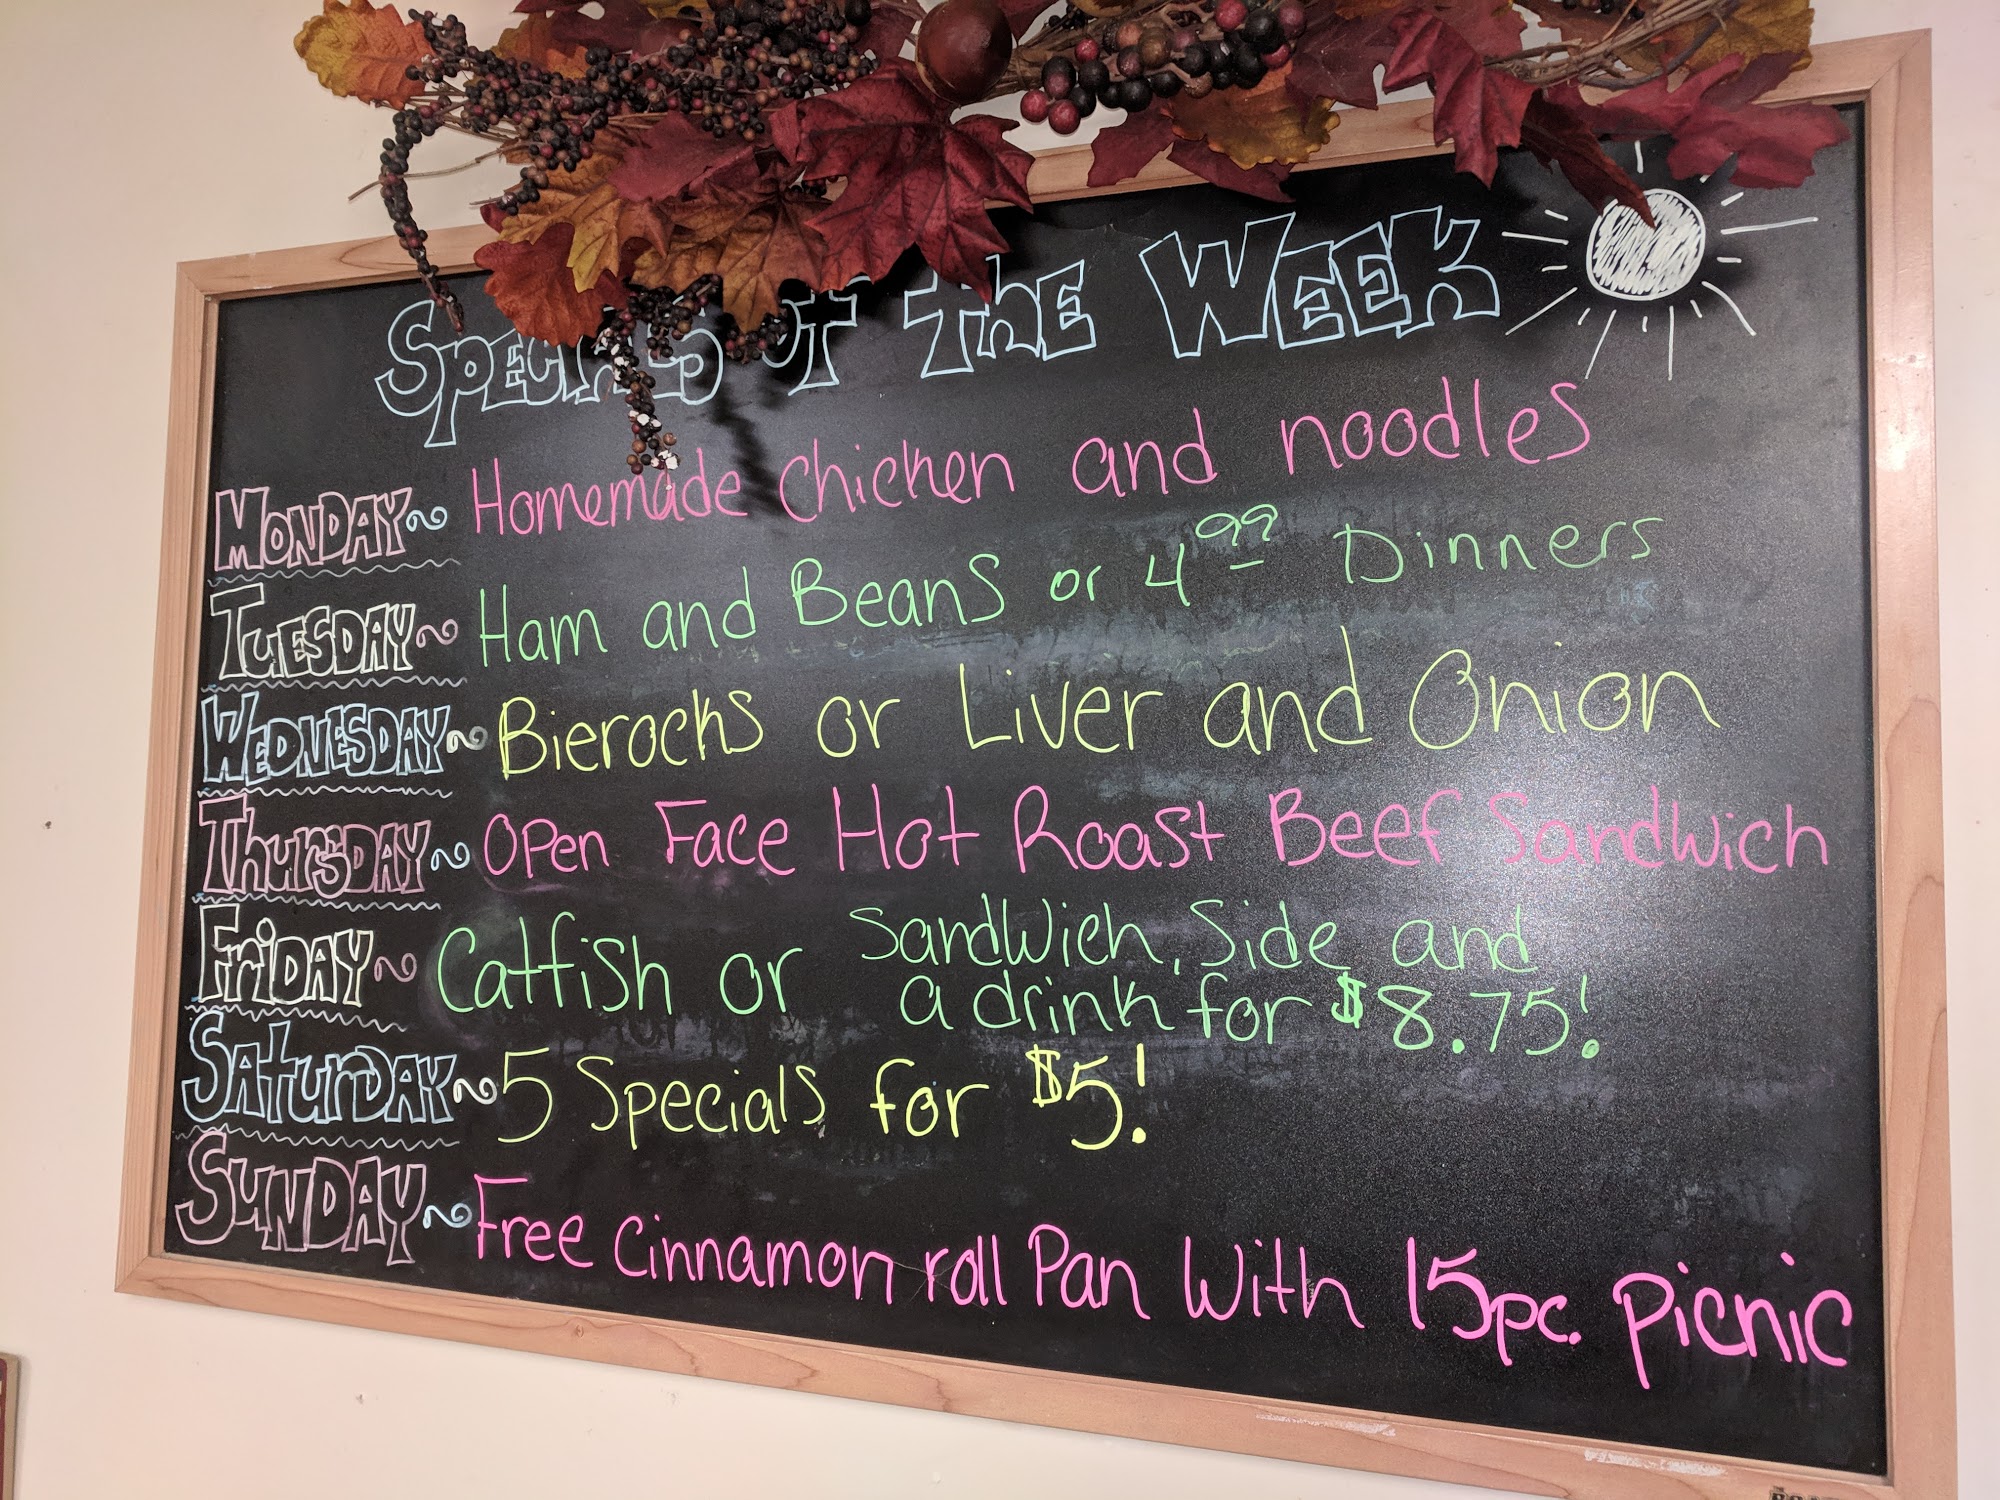 Specials of the Week
Monday~ Homemade chicken and noodles
Tuesday~ Ham and Beans or 4 99 Dinners
Wednesday~ Bierocks or Liver and Onion
Thursday~ Open Face Hot Roast Beef Sandwich
Friday~ Catfish or Sandwich, Side and
a drink for $8.75!
Saturday~ 5 Specials for $5!
Sunday~ Free cinnamon roll Pan With 15pc. Picnic